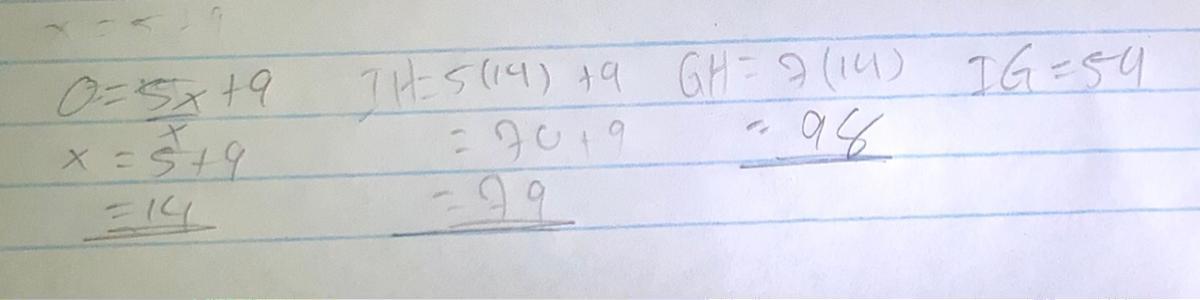 x = 5 + 9
0 = 5x + 9 IH = 5(14) + 9 GH = 7(14) IG = 54
x
x = 5 + 9 = 70 + 9 = 98
= 14 = 79